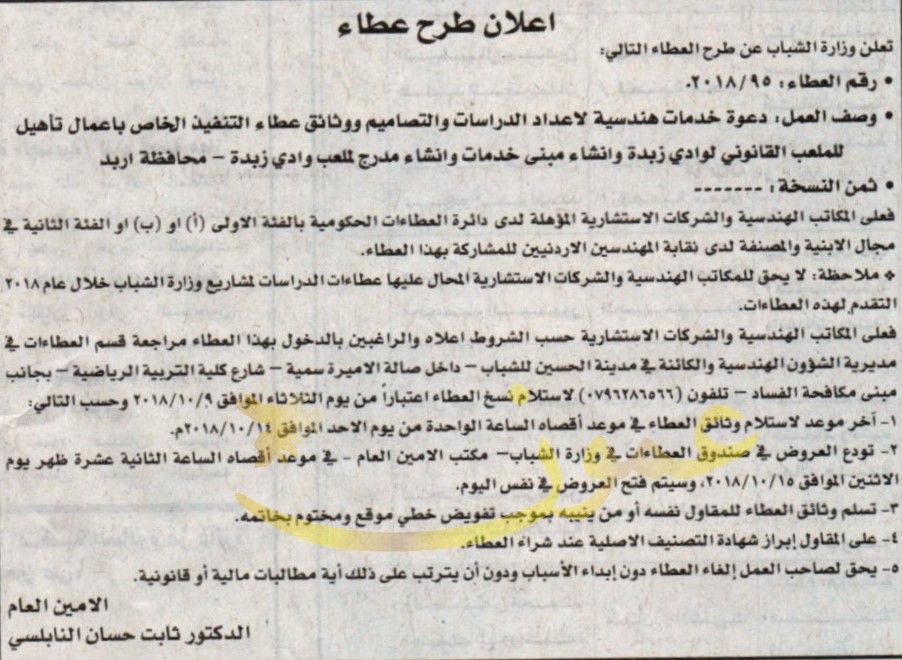 اعلان طرح عطاء
تعلن وزارة الشباب عن طرح العطاء التالي:
• رقم العطاء: ٢٠١٨/٩٥.
• وصف العمل: دعوة خدمات هندسية لاعداد الدراسات والتصاميم ووثائق عطاء التنفيذ الخاص باعمال تأهيل
للملعب القانوني لوادي زبدة وانشاء مبنى خدمات وانشاء مدرج لملعب وادي زبدة – محافظة اربد
• ثمن النسخة: -------
فعلى المكاتب الهندسية والشركات الاستشارية المؤهلة لدى دائرة العطاءات الحكومية بالفئة الاولى (أ) او (ب) او الفئة الثانية في
مجال الابنية والمصنفة لدى نقابة المهندسين الاردنيين للمشاركة بهذا العطاء.
❖ ملاحظة: لا يحق للمكاتب الهندسية والشركات الاستشارية المحال عليها عطاءات الدراسات لمشاريع وزارة الشباب خلال عام ٢٠١٨
التقدم لهذه العطاءات.
فعلى المكاتب الهندسية والشركات الاستشارية حسب الشروط اعلاه والراغبين بالدخول بهذا العطاء مراجعة قسم العطاءات في
مديرية الشؤون الهندسية والكائنة في مدينة الحسين للشباب – داخل صالة الاميرة سمية – شارع كلية التربية الرياضية – بجانب
مبنى مكافحة الفساد – تلفون (٠٧٩٦٢٨٦٥٦٦) لاستلام نسخ العطاء اعتباراً من يوم الثلاثاء الموافق ٢٠١٨/١٠/٩ وحسب التالي:
١- آخر موعد لاستلام وثائق العطاء في موعد أقصاه الساعة الواحدة من يوم الاحد الموافق ٢٠١٨/١٠/١٤م.
٢- تودع العروض في صندوق العطاءات في وزارة الشباب– مكتب الامين العام - في موعد أقصاه الساعة الثانية عشرة ظهر يوم
الاثنين الموافق ٢٠١٨/١٠/١٥، وسيتم فتح العروض في نفس اليوم.
٣- تسلم وثائق العطاء للمقاول نفسه أو من ينيبه بموجب تفويض خطي موقع ومختوم بخاتمه.
٤- على المقاول إبراز شهادة التصنيف الاصلية عند شراء العطاء.
٥- يحق لصاحب العمل إلغاء العطاء دون إبداء الأسباب ودون أن يترتب على ذلك أية مطالبات مالية أو قانونية.
الامين العام
الدكتور ثابت حسان النابلسي